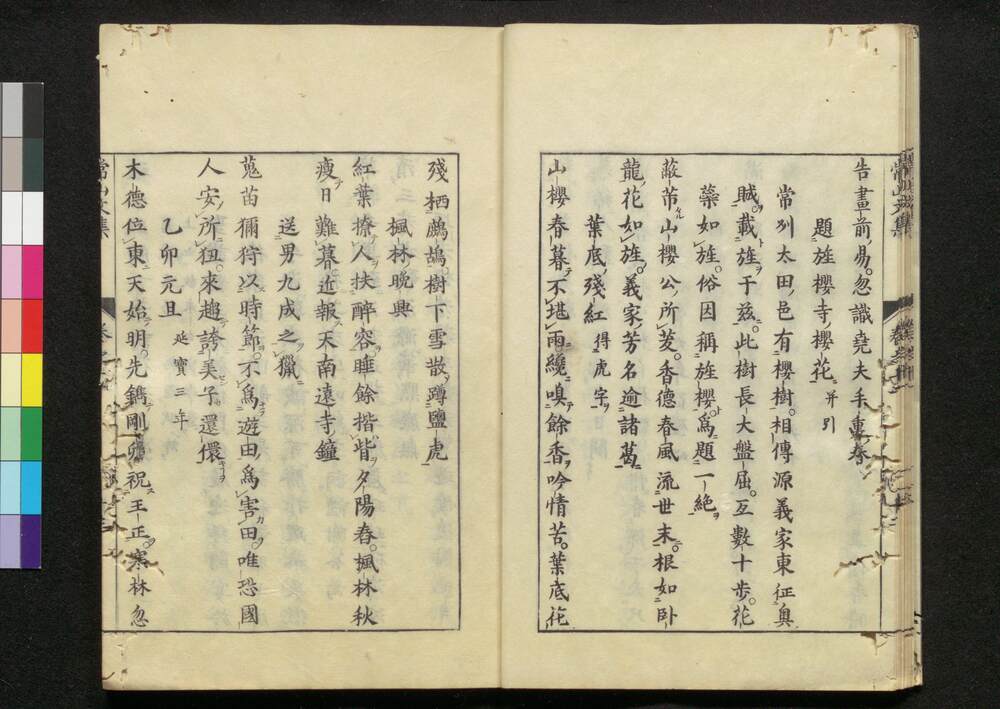 告畫前易忽識堯夫手裏春
題旌櫻寺櫻花 并引
常列太田邑有櫻樹相傳源義家東征奧
賊載旌于茲此樹長大盤屈互數十步花
蘂如旌俗因稱旌櫻爲題一絶
蔽芾山櫻公所茇香德春風流世末根如卧
龍花如旌義家芳名逾諸葛
葉底殘紅 得虎字
山櫻春暮不堪雨纔嗅餘香吟情苦葉底花
殘栖鷓鴣樹下雪散蹲鹽虎
楓林晩興
紅葉撩人扶醉容睡餘揩眥夕陽舂楓林秋
瘦日難暮近報天南遠寺鐘
送男九成之獵
蒐苗獮狩以時節不爲遊田爲害田唯恐國
人安所徃來趨誇美子還儇
乙卯元旦 延寶三年
木德位東天始明先鐫剛卯祝王正寒林忽
常山文集